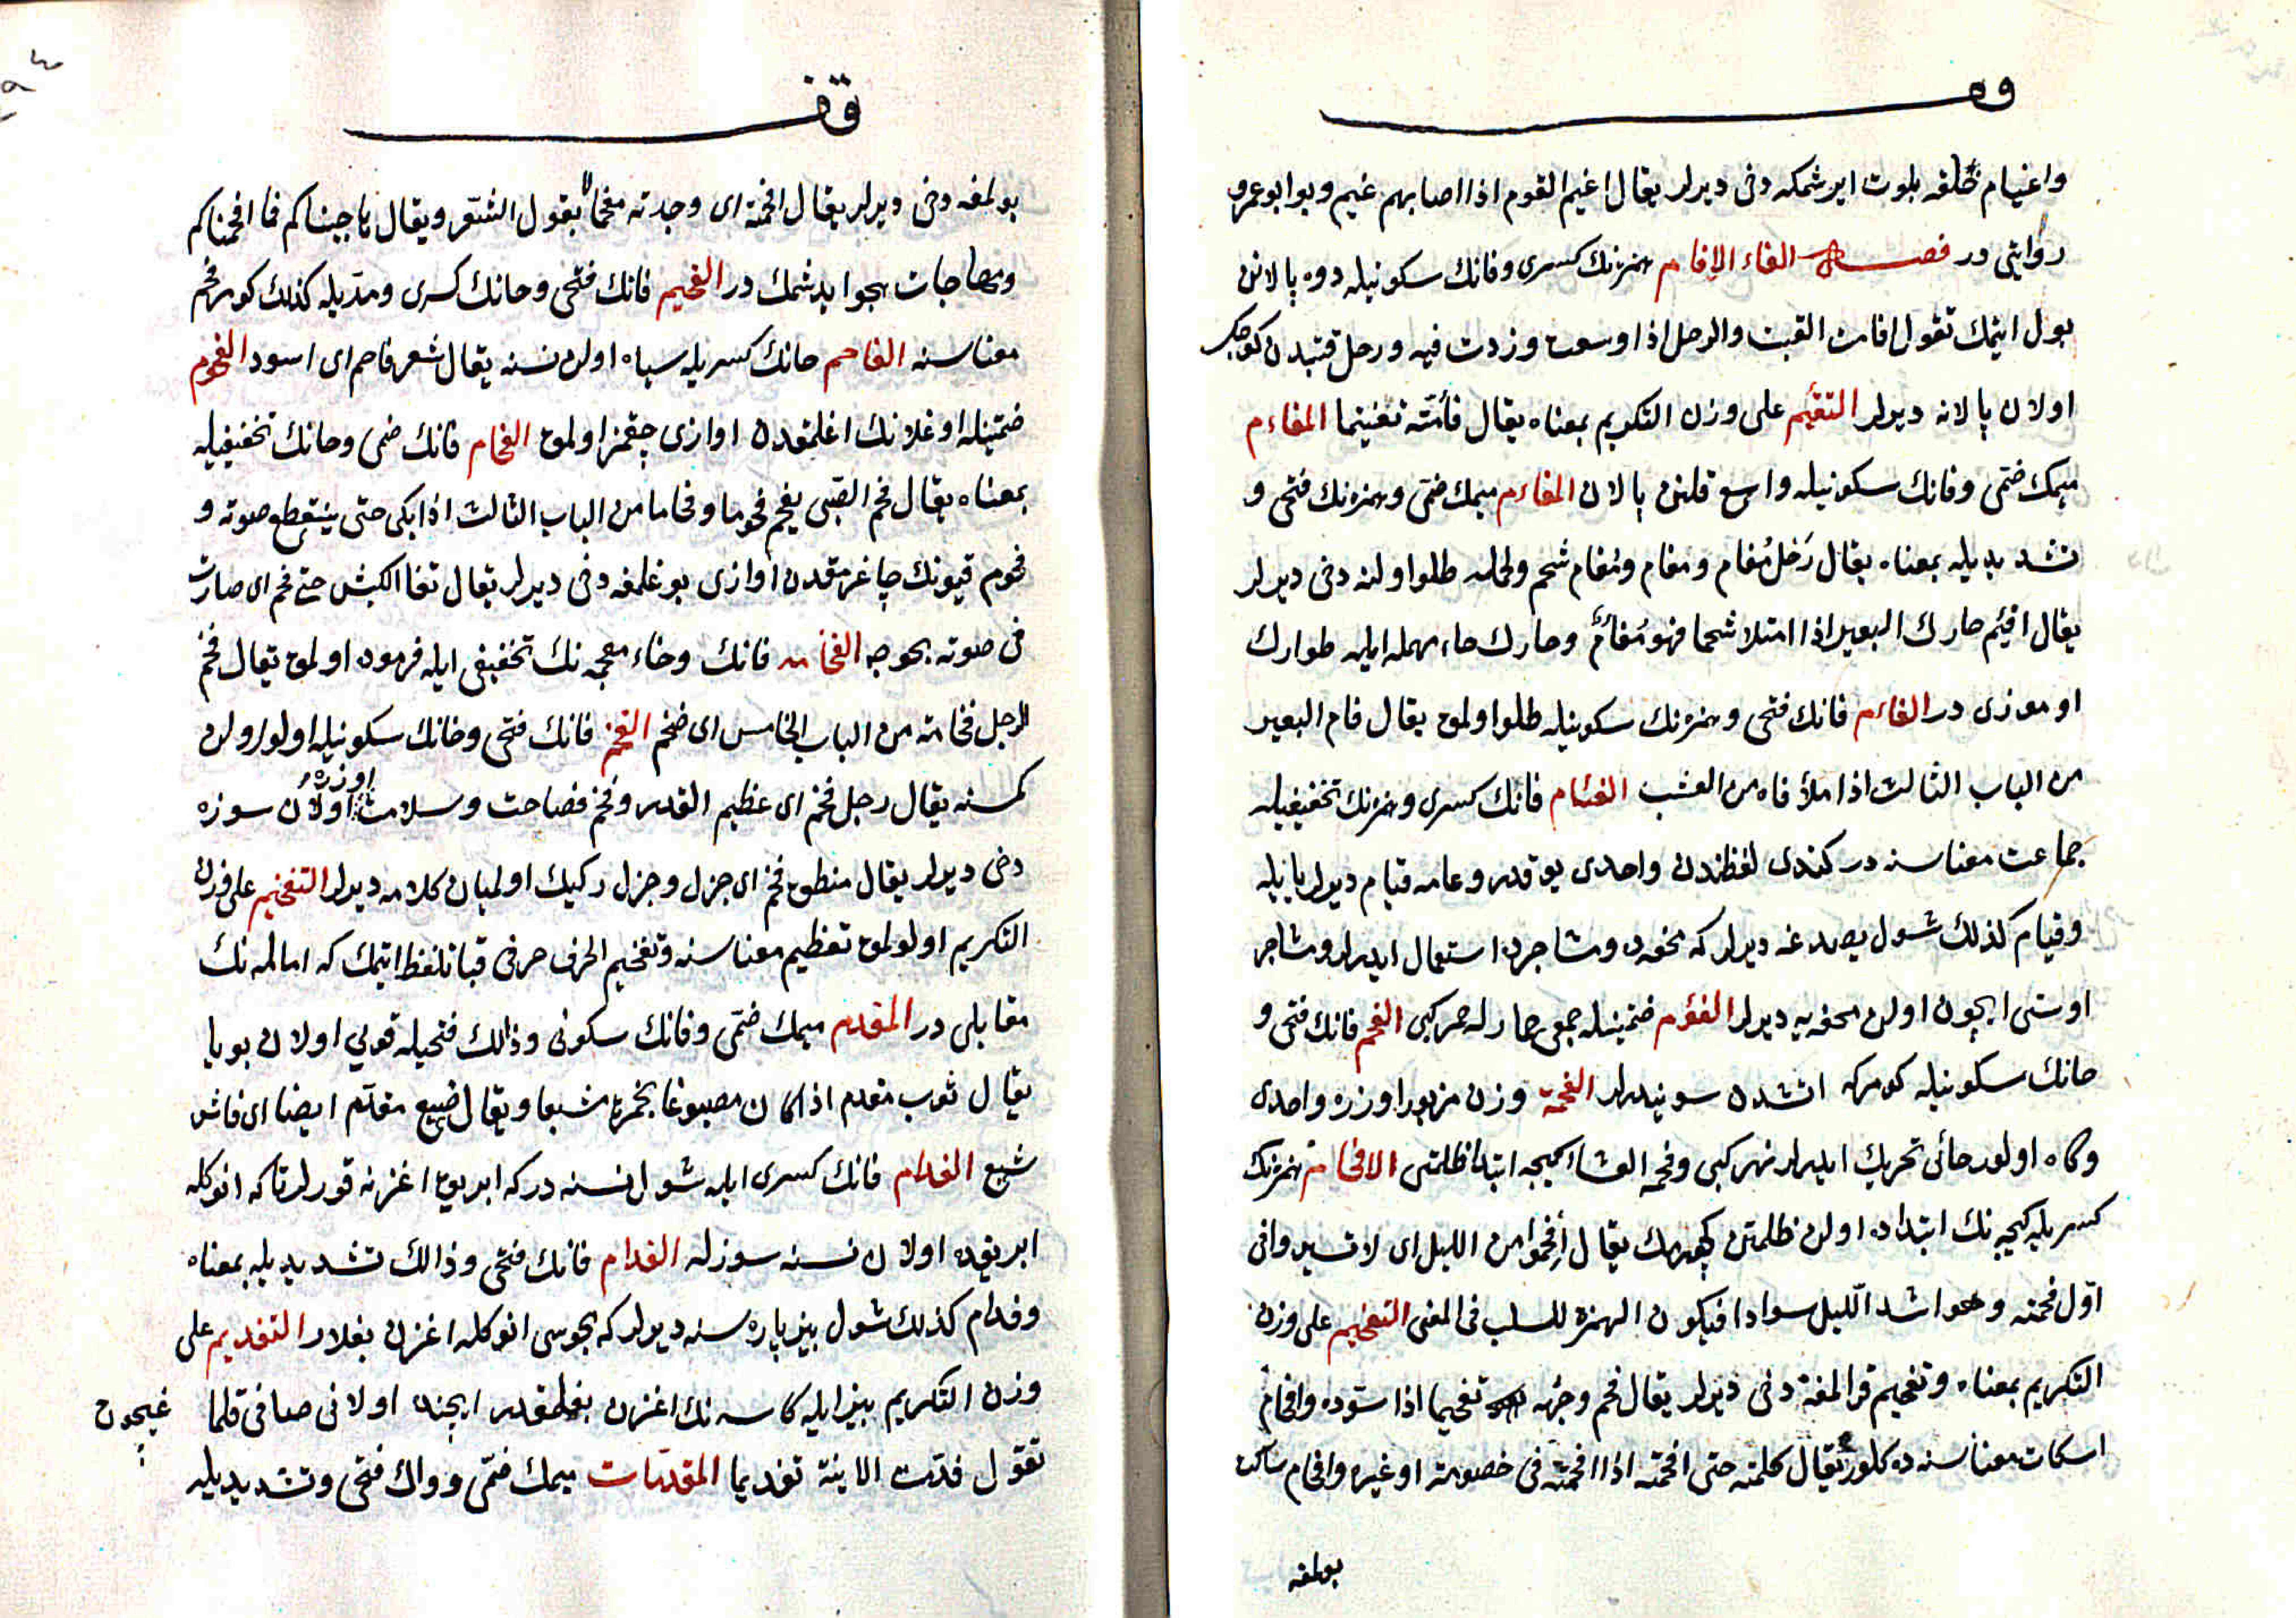 وه
واغيام خلقه بلوت ايرشمكه دخى ديرلر يقال اغيم القوم اذا اصابهم غيم وبو ابو عمرو
روايتى در فصل الفاء الافام همزنك كسرى وفانك سكونيله دوه پالانن
بول ايتمك تقول افامت القتب والرحل اذا اوسعت وزدت فيه ورحل قتبدن كوچك
اولان پالانه ديرلر التفئيم على وزن التكريم بمعناه يقال فأمته تفئيما المفاءم
ميمك ضمى وفانك سكونيله واسع قلنن پالان المفاءم ميمك ضمى وهمزه نك فتحى و
تشديديله بمعناه يقال رحل مفام ومفام ومفام شحم ولحمله طلو اولنه دخى ديرلر
يقال افئم حارك البعير اذا امتلا شحما فهو مفأم وحارك حاء مهمله ايله طوارك
اوموزى در الفاءم فانك فتحى وهمزه نك سكونيله طلو اولمق يقال فام البعير
من الباب الثالث اذا ملأ فاه من العشب الفئام فانك كسرى وهمزنك تخفيفيله
جماعت معناسنه در كندى لفظندن واحدى يوقدر وعامه فيام ديرلر يا يله
وفيام كذلك شول يصدغه ديرلر كه محفه ده ومشاجرده استعمال ايدرلر ومشاجر
اوستى اچون اولن محفه يه ديرلر الفؤم ضمتينله جمعى حمار له حمر كبى الفحم فانك فتحى و
حانك سكونيله كومركه اتشدن سونيدرلر الفحمة وزن مزبور اوزره واحدى
وكاه اولور حائى تحريك ايدرلر نهر كبى وفحمة العشاء كيجه ابتدا ظلمتى الافحام همزنك
كسريله كيجه نك ابتداده اولن ظلمتن كچرمك يقال افحموا من الليل اى لا تسير وافى
اول فحمته وهو اشد الليل سوادا فيكون الهمزة للسلب فى المعنى التفحيم على وزن
التكريم بمعناه وتفحيم قرالمغه دخى ديرلر يقال فحم وجهه تفحيما اذا سوده وافحام
اسكات معناسنه ده كلور يقال كلمته حتى افحمته اذا افحمته فى خصومة او غيره وافحام ساكت
بولمغه
قف
بولمغه دخى ديرلر يقال افحمته اى وجدته مفحما لا يقول الشعر ويقال هاجيناكم فما افحمناكم
ومهاجات هجو ايدشمك در الفحيم فانك فتحى وحانك كسرى ومديله كذلك كومر فحم
معناسنه الفاحم حانك كسريله سياه اولن نسنه يقال شعر فاحم اى اسود الفحوم
ضمتينله اوغلانك اغلمقدن اوازى چقمز اولمق الفحام فانك ضمى وحانك تخفيفيله
بمعناه يقال فحم الصبى يفحم فحوما وفحاما من الباب الثالث اذا بكى حتى ينقطع صوته و
فحوم قيونك چاغرمقدن اوازى بوغلمغه دخى ديرلر يقال ثغا الكبش حتى فحم اى صارت
فى صوته بحوحه الفخامه فانك وخاء معجمه نك تخفيفى ايله فرموده اولمق يقال فخم
الرجل فخامة من الباب الخامس اى ضخم الفخم فانك فتحى وخانك سكونيله اولو اولن
كمسنه يقال رجل فخم اى عظيم القدر وفخم فصاحت وسلامت اوزره اولان سوزه
دخى ديرلر يقال منطق فخم اى جزل وجزل ركيك اولميان كلامه ديرلر التفخيم على وزن
التكريم اولولمق تعظيم معناسنه وتفخيم الحرف حرفى قبا تلفظ اتمك كه اماله نك
مقابلى در المفدم ميمك ضمى وفانك سكونى وذالك فتحيله قويى اولان بويا
يقال ثوب مفدم اذا كان مصبوغا بحمرة مشبعا ويقال صبغ مفدم ايضا اى خاثر
شبع الفدام فانك كسرى ايله شول نسنه در كه ابريق اغزنه قورلر تا كه انوكله
ابريقده اولان نسنه سوزله الفدام فانك فتحى وذالك تشديديله بمعناه
وفدام كذلك شول بيز پاره سنه ديرلر كه مجوسى انوكله اغزن بغلار التفديم على
وزن التكريم بيز ايله كاسه نك اغزن بغلمقدر ايچنده اولانى صافى قلما غيچون
تقول فدمت الآنية تفديما المفدمات ميمك ضمى ودالك فتحى وتشديديله